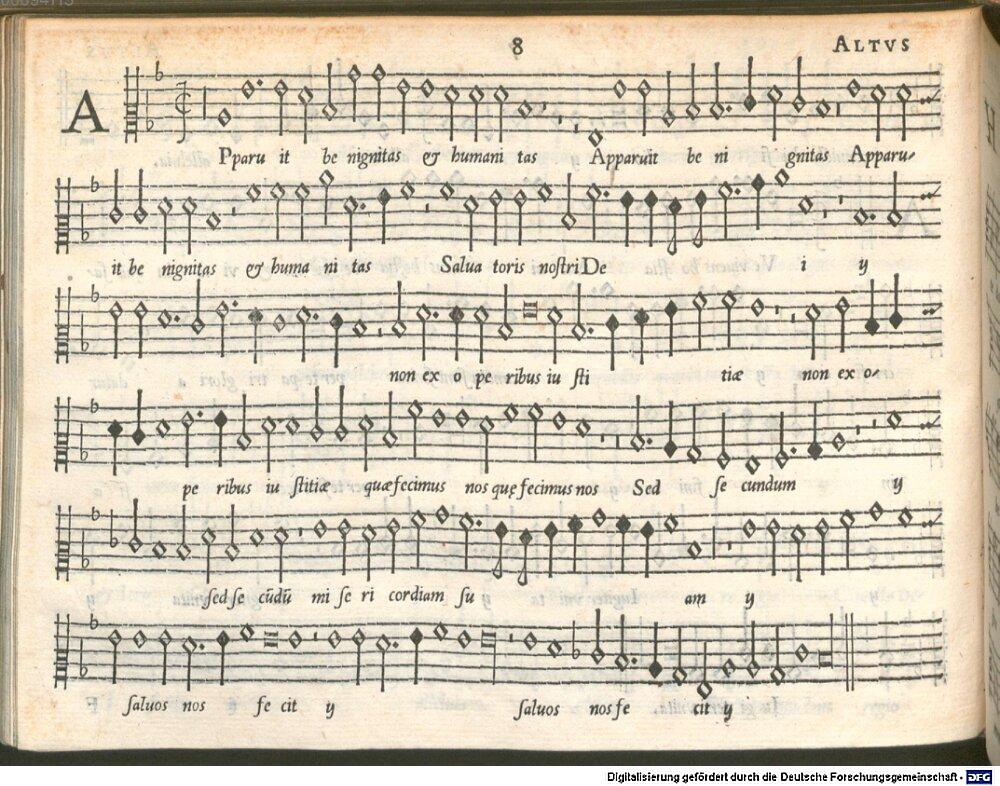 00094115
8 ALTVS
A
Pparu it be nignitas & humani tas Apparuit be ni gnitas Apparu-
it be nignitas & huma ni tas Salua toris nostri De i ij
non ex o pe ribus iu sti tiæ non ex o-
pe ribus iu stitiæ quæ fecimus nos quę fecimus nos Sed se cundum ij
sed se cūdū mi se ri cordiam su ij am ij
saluos nos fe cit ij saluos nos fe cit ij
Digitalisierung gefördert durch die Deutsche Forschungsgemeinschaft - DFG